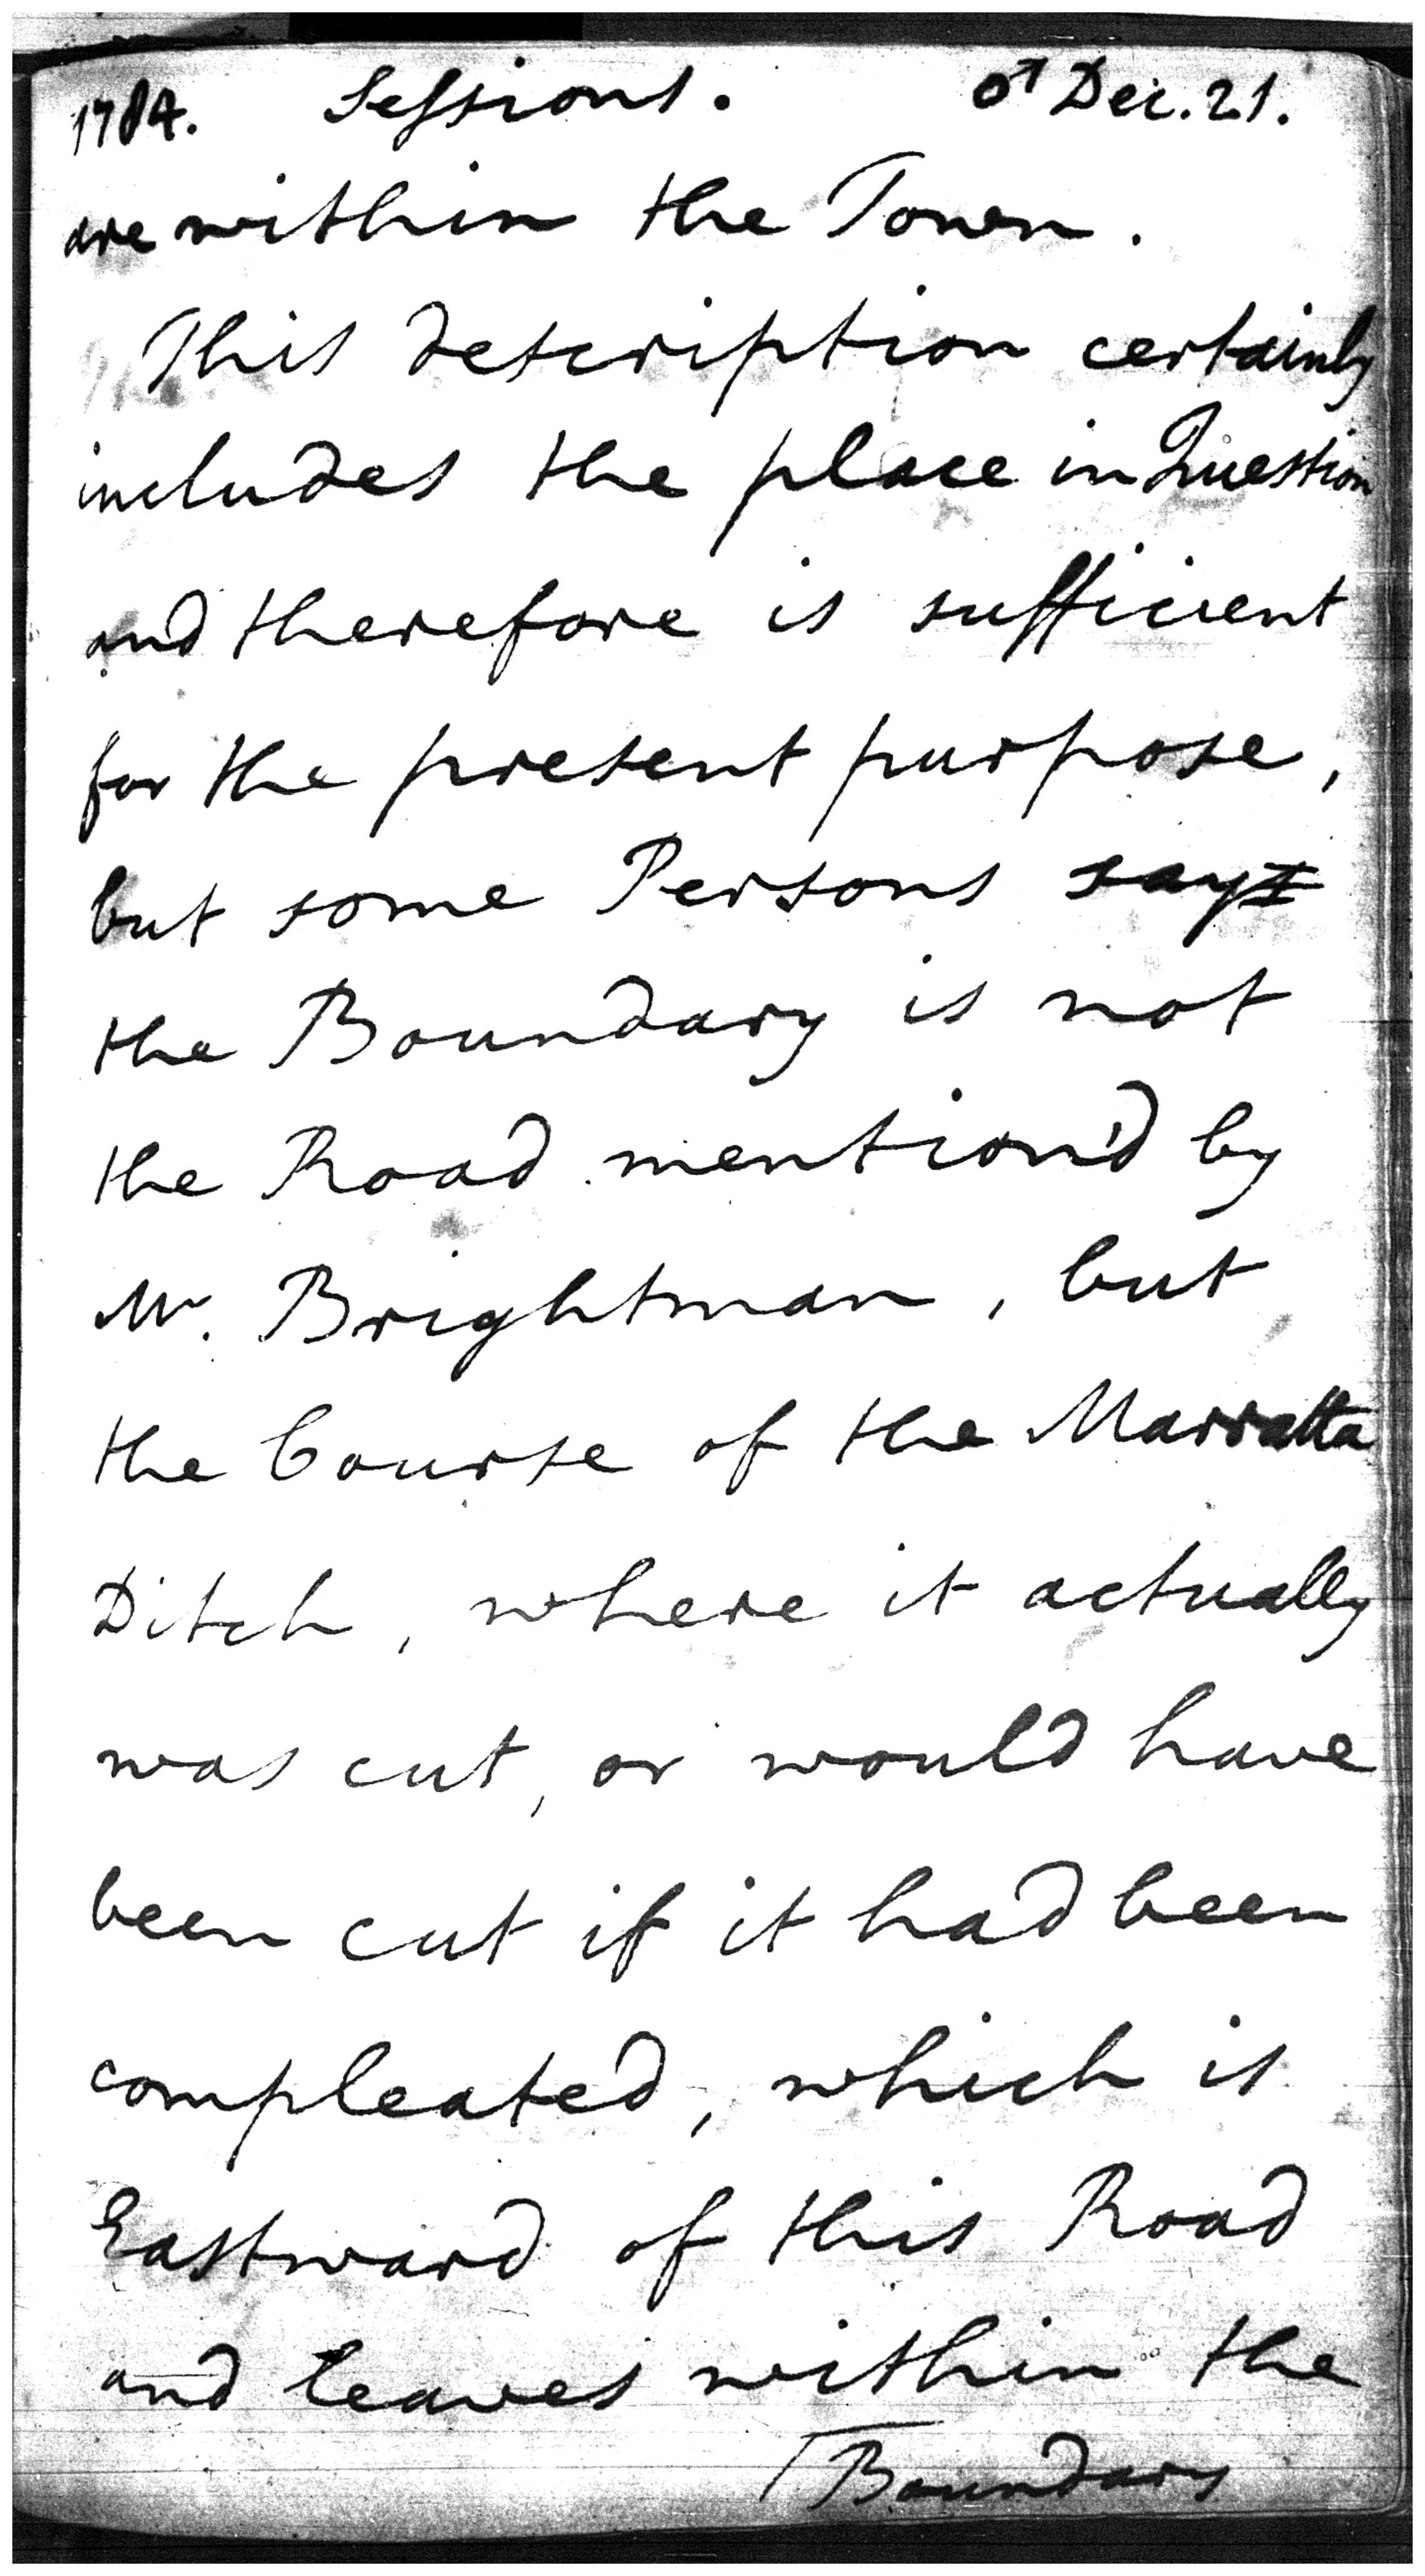 1784. Sessions. ♂ Dec. 21.
are within the Town.
This description certainly
includes the place in Question
and therefore is sufficient
for the present purpose,
but some Persons say
the Boundary is not
the Road mention'd by
Mr. Brightman, but
the Course of the Marratta
Ditch, where it actually
was cut, or would have
been cut if it had been
compleated, which is
Eastward of this Road
and leaves within the
Boundary